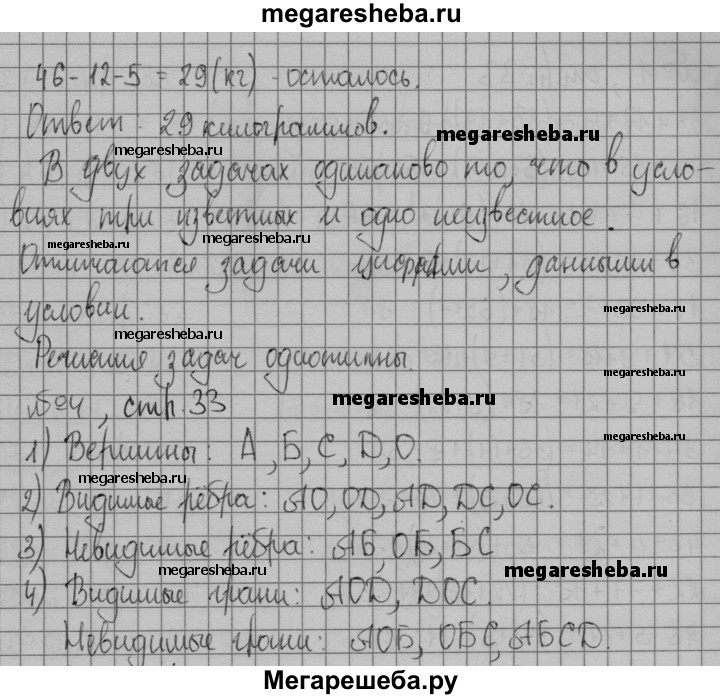 megaresheba.ru
46-12-5 = 29(кг) - осталось.
Ответ: 29 килограммов.
megaresheba.ru
megaresheba.ru
В двух задачах одинаково то, что в усло-
виях три известных и одно неизвестное.
megaresheba.ru megaresheba.ru
Отличаются задачи цифрами, данными в
условии.
megaresheba.ru
megaresheba.ru
Решения задач однотипны.
megaresheba.ru
№4, стр. 33
megaresheba.ru
1) Вершины: А, Б, С, D, О.
megaresheba.ru
megaresheba.ru
2) Видимые рёбра: АО, ОD, АD, DC, ОС.
megaresheba.ru
3) Невидимые рёбра: АБ, ОБ, БС
megaresheba.ru
megaresheba.ru
4) Видимые грани: АОD, DОС.
Невидимые грани: АОБ, ОБС, АБСD.
Мегарешеба.ру